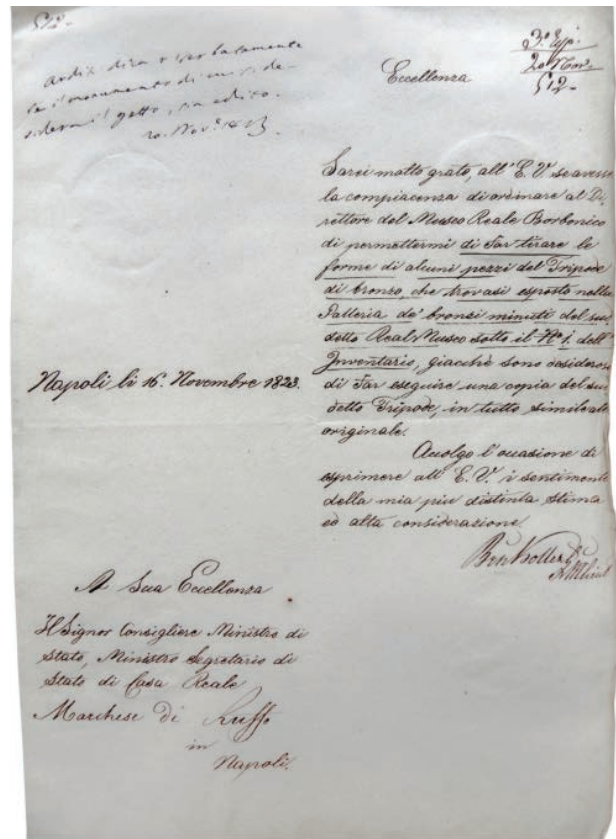 512.
Ardix dirà verbalmente
se il monumento di cui si de-
sidera il getto, sia edito.
20. Nov.e 1823.
3.o Rip.
20 Nov.
512.
Eccellenza
Sarei molto grato, all' E. V. se avesse
la compiacenza di ordinare al Di,
rettore del Museo Reale Borbonico
di permettermi di far tirare le
forme di alcuni pezzi del Tripode
di bronzo, che trovasi esposto nella
Galleria de' bronzi minuti del sud
detto Real Museo sotto il No 1. dell'
Inventario, giacchè sono desideroso
di far eseguire una copia del sud
detto Tripode, in tutto simile all'
originale.
Accolgo l'occasione di
esprimere all' E. V. i sentimenti
della mia più distinta stima
ed alta considerazione.
Napoli li 16. Novembre 1823.
A Sua Eccellenza
Il Signor Consigliere Ministro di
Stato, Ministro Segretario di
Stato di Casa Reale
Marchese di Ruffo
in
Napoli.